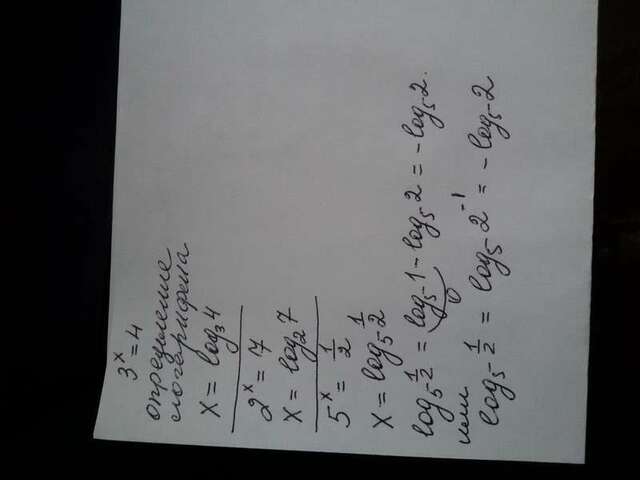 3ˣ = 4
определение
логарифма
x = log₃4
2ˣ = 7
x = log₂7
5ˣ = 1/2
x = log₅ 1/2
log₅ 1/2 = log₅ 1 - log₅ 2 = - log₅ 2.
0
или
log₅ 1/2 = log₅ 2⁻¹ = - log₅ 2